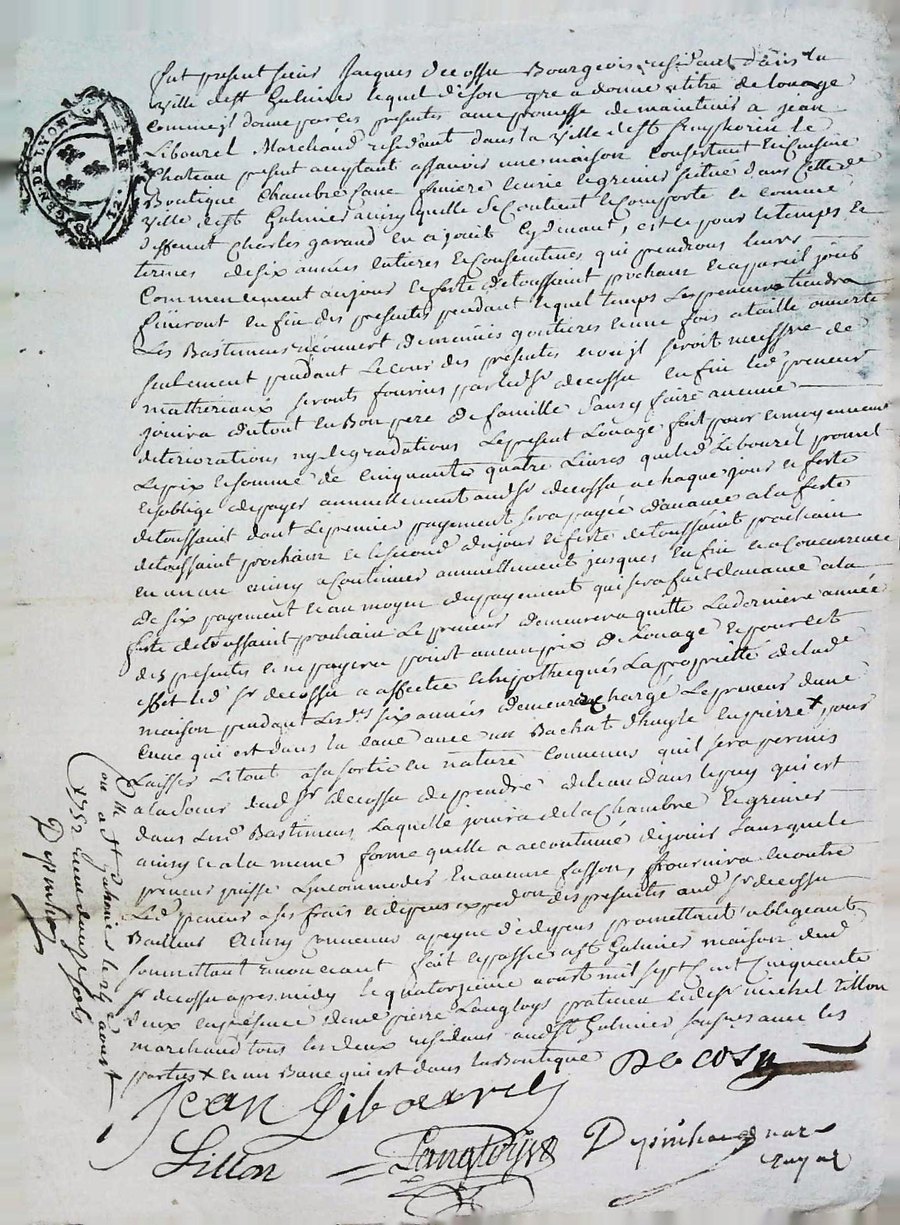 GEN. DE LYON
fut present sieur Jacques decossu Bourgeois residant dans la
ville de st Galmier lequel de son gré a donné a titre de louage
comme il donne par ces presentes avec promesse de maintenir a Jean
Libourel Marchand residant dans la ville de st Simphorien le
Chateau present acceptant assavoir une maison consistant en cuisine
Boutique Chambre Cave feniere Ecurie et grenier situé dans cette de
ville de st Galmier ainsy quelle se contient et comporte et comme
deffunt Charles garand en a jouit cydevant, est ce pour le temps et
termes de six années entieres et consecutives qui prendront leurs
commencement au jour et feste de toussaint prochain et a pareil jour
finiront en fin des presentes pendant lequel temps le preneur tiendra
Les Bastimens recouvert de menües goutieres et une fois a taille ouverte
seulement pendant le cour des presentes et ou il seroit necessaire de
matheriaux seronts fournis par led sr decossu enfin led preneur
jouira du tout en Bon pere de famille sans y faire aucune
deteriorations ny degradations Le present Louage fait pour et moyennent
Le prix et somme de cinquante quatre Livres que led Libourel promet
et soblige de payer annuellement aud sr decossu a chaque jour et feste
de toussaint dont le premier payement sera payée d'avance a la feste
de toussaint prochain et le second au jour et feste de toussaint prochain
en un an ainsy a continuer annuellement jusques en fin et a concurrence
de six payement et au moyen du payement qui sera fait d'avance a la
feste de toussaint prochain Le preneur demeurera quitte La derniere année
des presentes et ne payera point aucun prix de Louage et pour cet
effet led sr decossu a affecté et hipothequés La propriété de lade
maison pendant Les dts six années demeure chargé Le preneur d'une
cuve qui est dans la cave avec un Bachat d'huyle en pierre x pour
Laisser Le tout a sa sortie en nature convenus quil sera permis
a la soeur dud sr decossu de prendre de leau dans le puy qui est
dans Lesd Bastimens Laquelle jouira de la Chambre et grenier
ainsy et a la meme forme quelle a accoutumé de jouir sans que le
preneur puisse Lincommoder En aucune fasson, fournira en outre
Led preneur a ses frais et depens expedon des presentes aud sr decossu
Bailleur Ainsy convenus a peyne d'edepens promettant obligeant
soumettant renoncant fait et passé a st Galmier maison dud
sr decossu apres midy le quatorzieme aoust mil sept cent cinquante
deux en presence de me pierre Langloys praticien et de sr michel Tillon
marchand tous les deux residans aud st Galmier soussignes avec les
parties x et un Banc qui est dans la Boutique
Jean Libourel
Decossu
Tillon
Langloys
Depinhac
royal
Clle a st Galmier le 29 aoust
1752 Recu douze sols
Depinhac